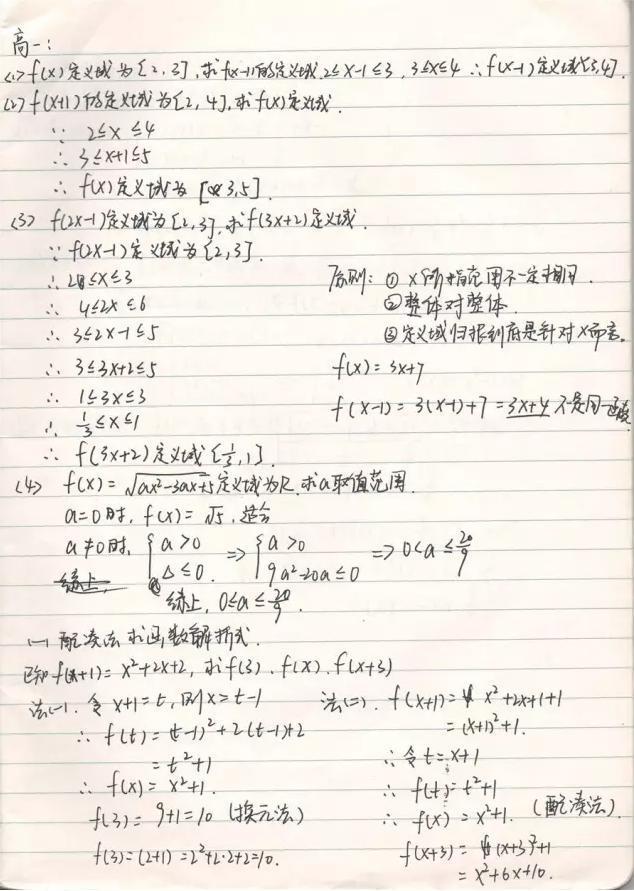 高一:
(1) f(x)定义域为[2,3],求f(x-1)的定义域. 2≤x-1≤3, 3≤x≤4 ∴f(x-1)定义域[3,4].
(2) f(x+1)的定义域为[2,4],求f(x)定义域.
∵ 2≤x≤4
∴ 3≤x+1≤5
∴ f(x)定义域为 [3,5].
(3) f(2x-1)定义域为[2,3],求f(3x+2)定义域.
∵ f(2x-1)定义域为[2,3].
∴ 2≤x≤3
∴ 4≤2x≤6
∴ 3≤2x-1≤5
∴ 3≤3x+2≤5
∴ 1≤3x≤3
∴ 1/3≤x≤1
∴ f(3x+2)定义域[1/3,1].
原则: ① x所指范围不一定相同.
② 整体对整体.
③ 定义域归根到底是针对x而言.
f(x)=3x+7
f(x-1)=3(x-1)+7=3x+4 不是同一函数
(4) f(x)=√(ax²-3ax+5)定义域为R,求a取值范围.
a=0时, f(x)=√5, 适合
a≠0时, { a>0 Δ≤0. ⇒ { a>0 9a²-20a≤0 ⇒ 0<a≤20/9
综上,
综上, 0≤a≤20/9.
(一) 配凑法求函数解析式.
已知f(x+1)=x²+2x+2, 求f(3). f(x). f(x+3)
法(一). 令x+1=t, 则x=t-1
∴ f(t)=(t-1)²+2(t-1)+2
=t²+1
∴ f(x)=x²+1.
f(3)=9+1=10 (换元法)
f(3)=(2+1)=2²+2·2+2=10.
法(二). f(x+1)=x²+2x+1+1
=(x+1)²+1.
∴ 令t=x+1
∴ f(t)=t²+1
∴ f(x)=x²+1. (配凑法).
f(x+3)=(x+3)²+1
=x²+6x+10.